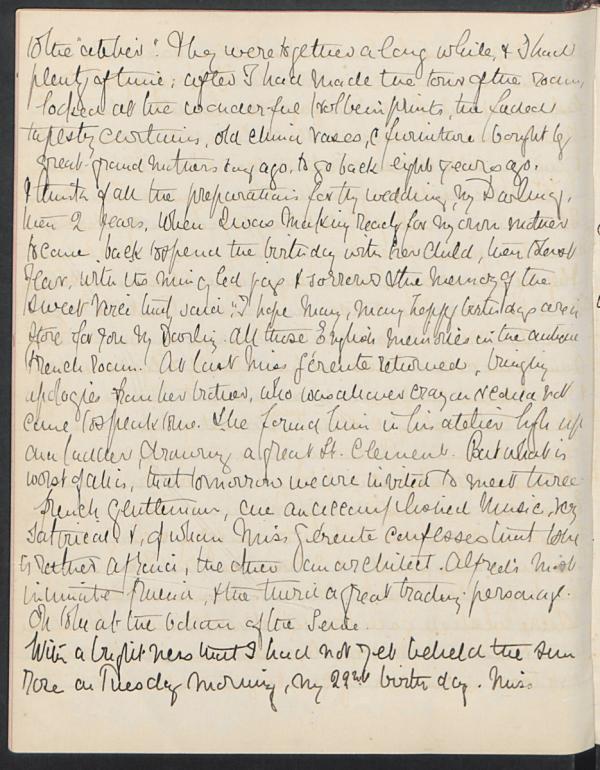 to the "atelier". They were together a long while, & I had
plenty of time; after I had made the tour of the room,
looked at the wonderful Holbein prints, the faded
tapestry curtains, old china vases, & furniture bought by
great-grand mothers long ago, to go back eight years ago.
I think of all the preparations for thy wedding, My Darling,
then 2 years, when I was making ready for my own mother
to come back to spend the birthday with her child, then to last
year, with its mingled joys & sorrows & the memory of the
sweet voice that said "I hope many, many happy birthdays are in
store for you My Darling. All these English memories in the antique
French room. At last Miss Gérente returned, bringing
apologies from her brother, who was above crayon & could not
come to speak to me. She found him in his atelier high up
on a ladder, drawing a great St. Clement. But what is
worst of all is, that tomorrow we are invited to meet three
French gentlemen, one an accomplished musician, very
satirical &, of whom Miss Gérente confesses that she
is rather afraid, the other an architect. Alfred's most
intimate friend, & the third a great trading personage.
Oh to be at the bottom of the Seine.
With a brightness that I had not yet beheld the sun
rose on Tuesday morning, my 29th birthday. Miss